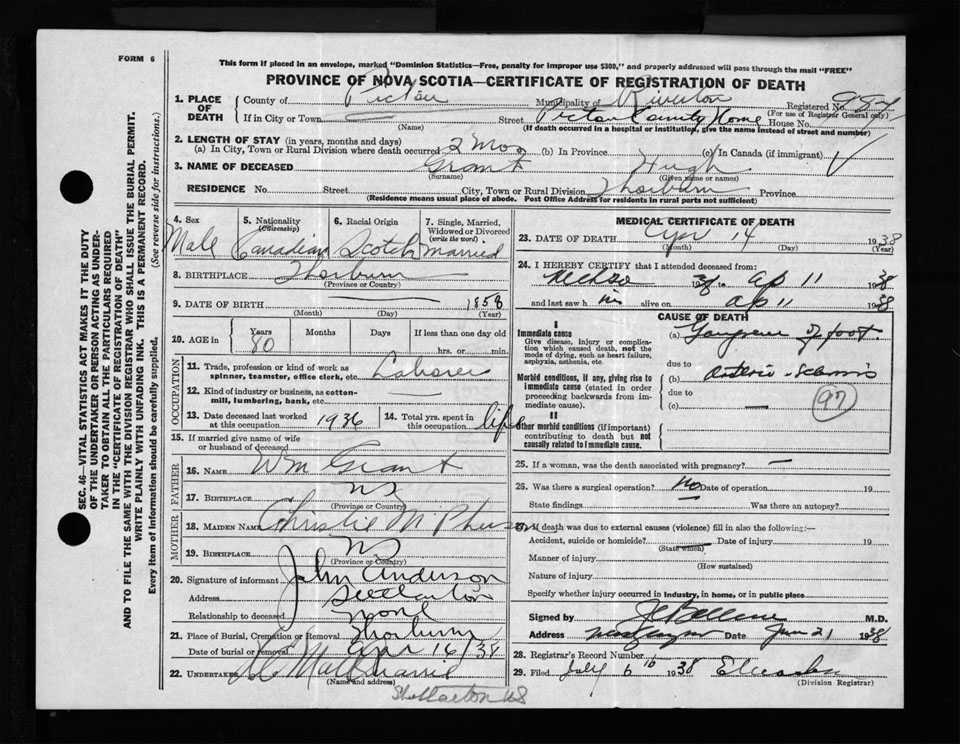 FORM 6
This form if placed in an envelope, marked "Dominion Statistics—Free, penalty for improper use $300," and properly addressed will pass through the mail "FREE"
PROVINCE OF NOVA SCOTIA—CERTIFICATE OF REGISTRATION OF DEATH
1. PLACE OF DEATH
County of Pictou Municipality of Riverton Registered No.
(For use of Registrar General only)
If in City or Town Street Pictou County Home House No.
(Name) (If death occurred in a hospital or institution, give the name instead of street and number)
2. LENGTH OF STAY (in years, months and days)
(a) In City, Town or Rural Division where death occurred 2 mos (b) In Province (c) In Canada (if immigrant)
3. NAME OF DECEASED Grant Hugh
(Surname) (Given name or names)
RESIDENCE No. Street City, Town or Rural Division Thorburn Province
(Residence means usual place of abode. Post Office Address for residents in rural parts not sufficient)
4. Sex Male
5. Nationality (Citizenship) Canadian
6. Racial Origin Scotch
7. Single, Married, Widowed or Divorced (write the word) Married
8. BIRTHPLACE Thorburn
(Province or Country)
9. DATE OF BIRTH 1858
(Month) (Day) (Year)
10. AGE in Years 80 Months Days If less than one day old hrs. or min.
OCCUPATION
11. Trade, profession or kind of work as spinner, teamster, office clerk, etc. Laborer
12. Kind of industry or business, as cotton-mill, lumbering, bank, etc.
13. Date deceased last worked at this occupation 1936
14. Total yrs. spent in this occupation life
15. If married give name of wife or husband of deceased
FATHER
16. NAME Wm Grant
17. BIRTHPLACE NS
(Province or Country)
MOTHER
18. MAIDEN NAME Christie McPherson
19. BIRTHPLACE NS
(Province or Country)
20. Signature of informant John Anderson
Address Stellarton
Relationship to deceased none
21. Place of Burial, Cremation or Removal Thorburn
Date of burial or removal Apr 16/38
22. UNDERTAKER
(Name and address)
Stellarton NS
MEDICAL CERTIFICATE OF DEATH
23. DATE OF DEATH Apr 14 1938
(Month) (Day) (Year)
24. I HEREBY CERTIFY that I attended deceased from:
38 to Ap 11 38
and last saw h im alive on Ap 11 1938
CAUSE OF DEATH
I
Immediate cause
Give disease, injury or complication which caused death, not the mode of dying, such as heart failure, asphyxia, asthenia, etc.
(a) Gangrene of foot
due to
Morbid conditions, if any, giving rise to immediate cause (stated in order proceeding backwards from immediate cause).
(b) Arterio-Sclerosis
due to
(c) —
97
II
Other morbid conditions (if important) contributing to death but not causally related to immediate cause.
25. If a woman, was the death associated with pregnancy? —
26. Was there a surgical operation? No Date of operation 19
State findings Was there an autopsy?
27. If death was due to external causes (violence) fill in also the following:—
Accident, suicide or homicide? Date of injury 19
(State which)
Manner of injury
(How sustained)
Nature of injury
Specify whether injury occurred in industry, in home, or in public place
Signed by M.D.
Address New Glasgow Date June 21 1938
28. Registrar's Record Number
29. Filed July 6th 1938
(Division Registrar)
SEC. 46—VITAL STATISTICS ACT MAKES IT THE DUTY
OF THE UNDERTAKER OR PERSON ACTING AS UNDER-
TAKER TO OBTAIN ALL THE PARTICULARS REQUIRED
IN THE "CERTIFICATE OF REGISTRATION OF DEATH"
AND TO FILE THE SAME WITH THE DIVISION REGISTRAR WHO SHALL ISSUE THE BURIAL PERMIT.
WRITE PLAINLY WITH UNFADING INK. THIS IS A PERMANENT RECORD.
Every item of information should be carefully supplied. (See reverse side for instructions.)